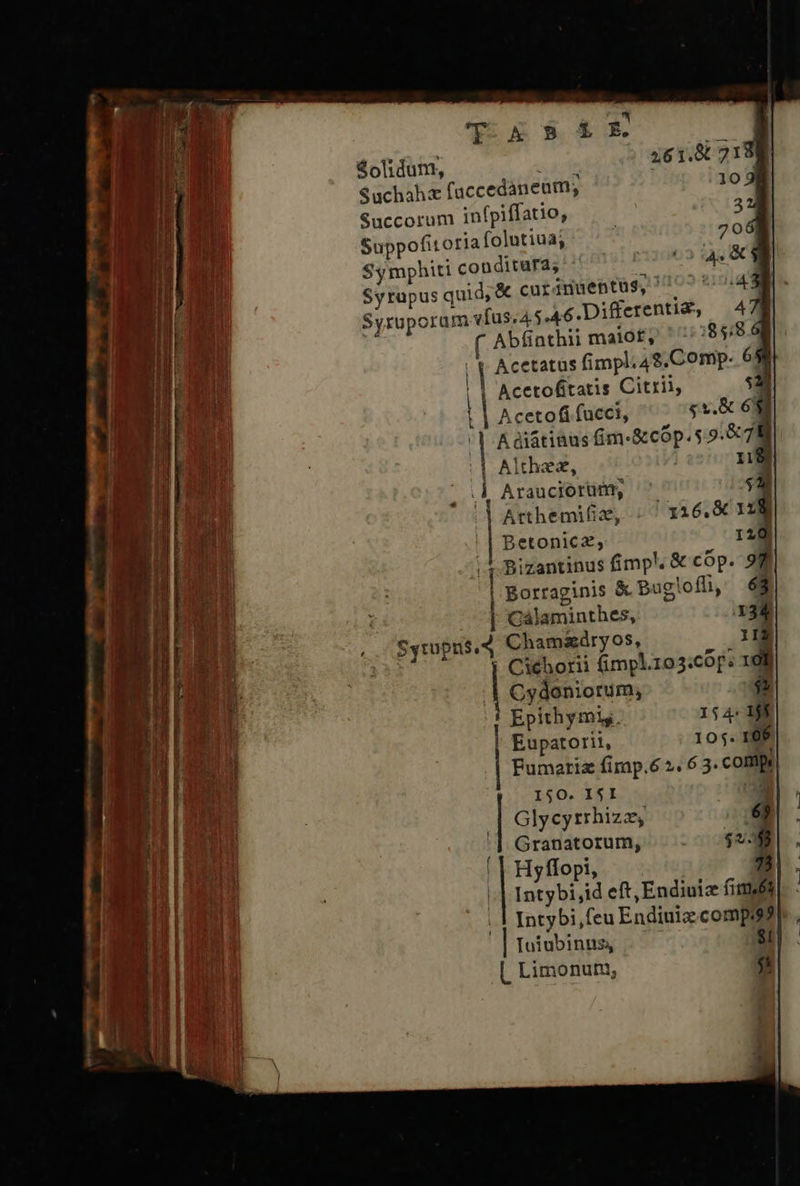 TABLE.
Solidum, 261.& 718
Suchahæ ſuccedaneum, 109
Succorum inſpiſſatio, 32
Suppoſitoria ſolutiua, 706
Symphiti conditura, 4. &
Syrupus quid, & cur inuentus, 43
Syruporum vſus. 45.46. Differentiæ, 47
Abſinthii maior, 85.86
Acetatus ſimpl. 48. Comp.
Acetoſitatis Citrii,
Acetoſi ſucci, 51.&
Adiátinus ſim. & cōp. 59.&
Althææ, 118
Arauciorum,
Arthemiſiæ, 116.&
Betonicæ, 120
Bizantinus ſimpl. & cōp.
Borraginis & Bugloſſi, 63
Calaminthes, 134
Syrupus. Chamædryos,
Cichorii ſimpl. 103. cōp.
Cydoniorum,
Epithymi, 154.
Eupatorii, 105. 106
Fumariæ ſimp. 62. 63. comp.
150. 151
Glycyrrhizæ,
Granatorum,
Hyſſopi,
Intybi, id eſt, Endiuiæ ſim.
Intybi, ſeu Endiuiæ comp. 99
Iuiubinus,
Limonum,